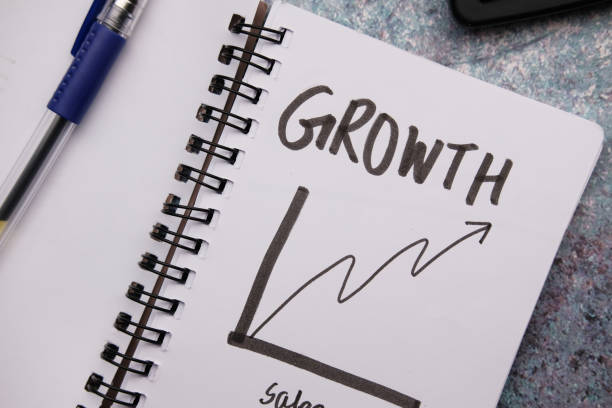 GROWTH
Sales